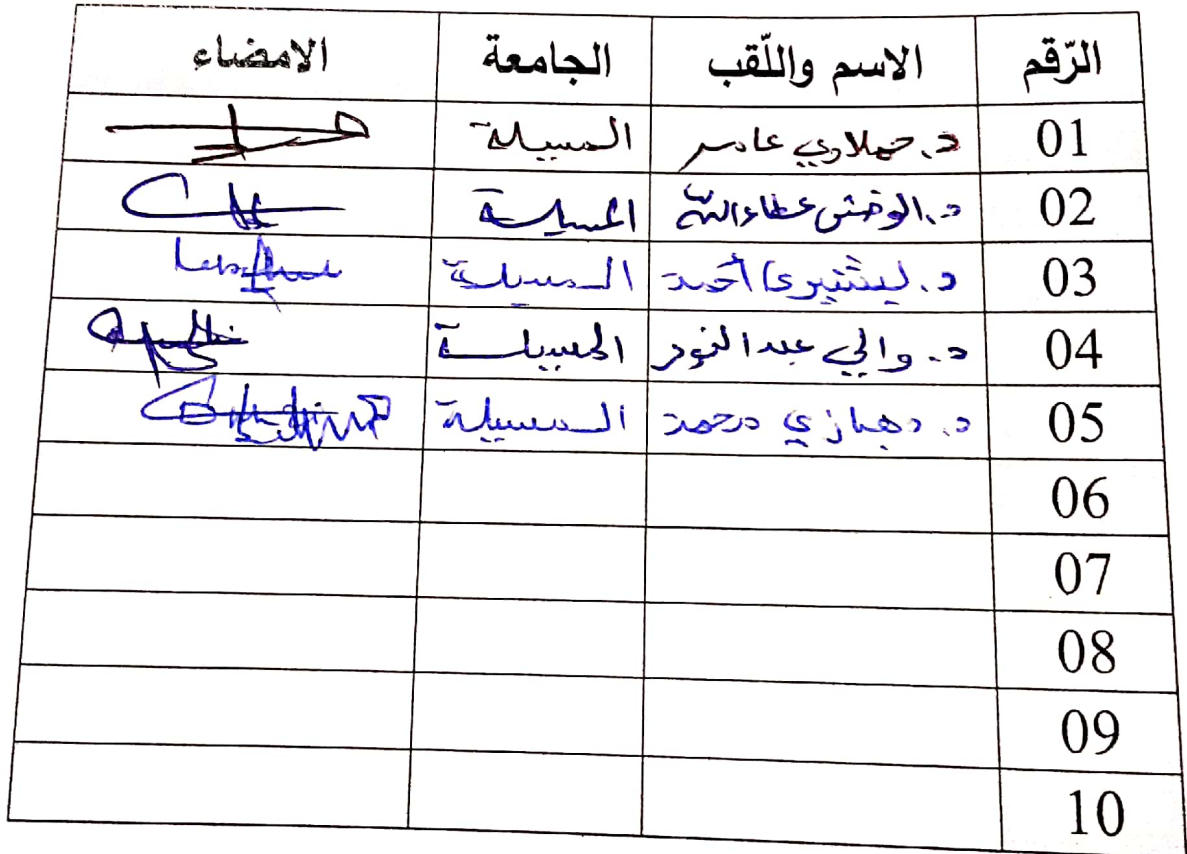 الرّقم الاسم واللّقب الجامعة الامضاء
01 د. حملاوي عامر المسيلة
02 د. الوخش عطاء الله المسيلة
03 د. أحمد المسيلة
04 د. والي عبد النور المسيلة
05 د. محمد المسيلة
06
07
08
09
10